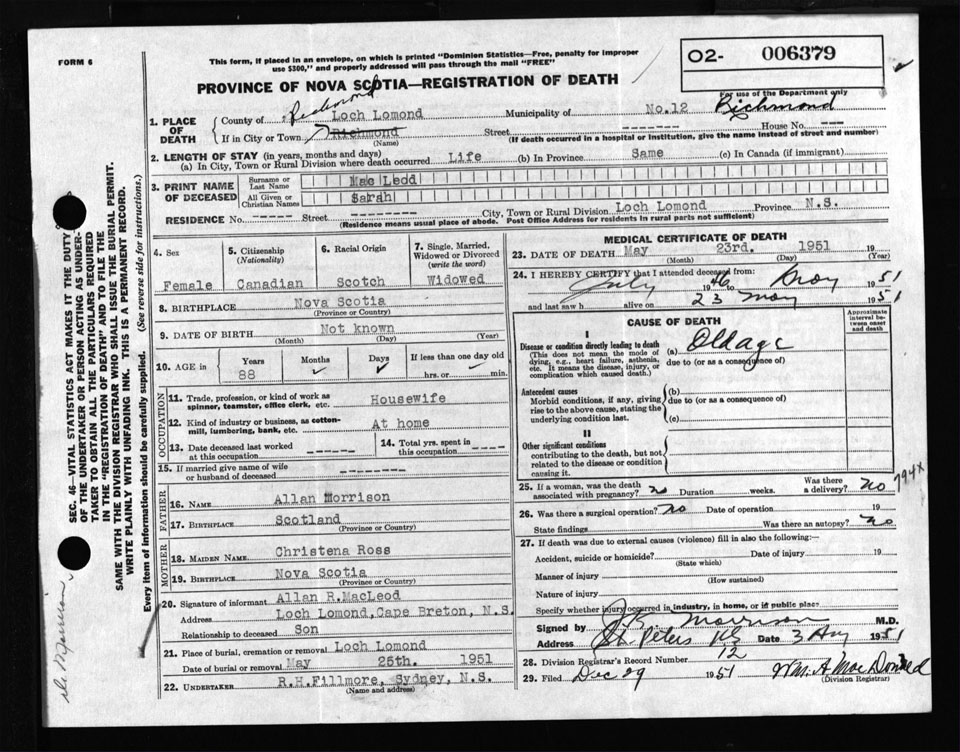 FORM 6
This form, if placed in an envelope, on which is printed "Dominion Statistics—Free, penalty for improper
use $300," and properly addressed will pass through the mail "FREE"
O2- 006379
PROVINCE OF NOVA SCOTIA—REGISTRATION OF DEATH
For use of the Department only
1. PLACE OF DEATH
Richmond
County of Loch Lomond Municipality of No.12 Richmond
If in City or Town Richmond Street ------- House No. ---
(Name) (If death occurred in a hospital or institution, give the name instead of street and number)
2. LENGTH OF STAY (in years, months and days)
(a) In City, Town or Rural Division where death occurred Life (b) In Province Same (c) In Canada (if immigrant)
3. PRINT NAME OF DECEASED
Surname or Last Name Mac Ledd
All Given or Christian Names Sarah
RESIDENCE No. ----- Street --------- City, Town or Rural Division Loch Lomond Province N.S.
(Residence means usual place of abode. Post Office Address for residents in rural parts not sufficient)
4. Sex Female
5. Citizenship (Nationality) Canadian
6. Racial Origin Scotch
7. Single, Married, Widowed or Divorced (write the word) Widowed
8. BIRTHPLACE Nova Scotia
(Province or Country)
9. DATE OF BIRTH Not known
(Month) (Day) (Year)
10. AGE IN Years Months Days If less than one day old
88 ✓ ✓ hrs. or min.
OCCUPATION
11. Trade, profession, or kind of work as
spinner, teamster, office clerk, etc. Housewife
12. Kind of industry or business, as cotton-
mill, lumbering, bank, etc. At home
13. Date deceased last worked
at this occupation ----
14. Total yrs. spent in
this occupation ----
15. If married give name of wife
or husband of deceased -------
FATHER
16. NAME Allan Morrison
17. BIRTHPLACE Scotland
(Province or Country)
MOTHER
18. MAIDEN NAME Christena Ross
19. BIRTHPLACE Nova Scotia
(Province or Country)
20. Signature of informant Allan R.MacLeod
Address Loch Lomond,Cape Breton, N.S.
Relationship to deceased Son
21. Place of burial, cremation or removal Loch Lomond
Date of burial or removal May 25th. 1951
22. UNDERTAKER R.H.Fillmore, Sydney, N.S.
(Name and address)
MEDICAL CERTIFICATE OF DEATH
23. DATE OF DEATH May 23rd. 1951 19
(Month) (Day) (Year)
24. I HEREBY CERTIFY that I attended deceased from:
July 1946 to May 1951
and last saw h alive on 23 May 1951
CAUSE OF DEATH
Approximate interval between onset and death
I
Disease or condition directly leading to death
(This does not mean the mode of
dying, e.g., heart failure, asthenia,
etc. It means the disease, injury, or
complication which caused death.)
(a) Old age
due to (or as a consequence of)
Antecedent causes
Morbid conditions, if any, giving
rise to the above cause, stating the
underlying condition last.
(b)
due to (or as a consequence of)
(c)
II
Other significant conditions
contributing to the death, but not
related to the disease or condition
causing it.
794X
25. If a woman, was the death
associated with pregnancy? no Duration weeks. Was there a delivery? no
26. Was there a surgical operation? no Date of operation 19
State findings Was there an autopsy? no
27. If death was due to external causes (violence) fill in also the following:—
Accident, suicide or homicide? Date of injury 19
(State which)
Manner of injury
(How sustained)
Nature of injury
Specify whether injury occurred in industry, in home, or in public place
Signed by Morrison M.D.
Address St. Peters Date 3 Aug 1951
28. Division Registrar's Record Number 12
29. Filed Dec 29 1951 Wm. A MacDonald
(Division Registrar)
SEC. 46—VITAL STATISTICS ACT MAKES IT THE DUTY
OF THE UNDERTAKER OR PERSON ACTING AS UNDER-
TAKER TO OBTAIN ALL THE PARTICULARS REQUIRED
IN THE "REGISTRATION OF DEATH" AND TO FILE THE
SAME WITH THE DIVISION REGISTRAR WHO SHALL ISSUE THE BURIAL PERMIT.
WRITE PLAINLY WITH UNFADING INK. THIS IS A PERMANENT RECORD.
Every item of information should be carefully supplied. (See reverse side for instructions.)
Dr. Morrison